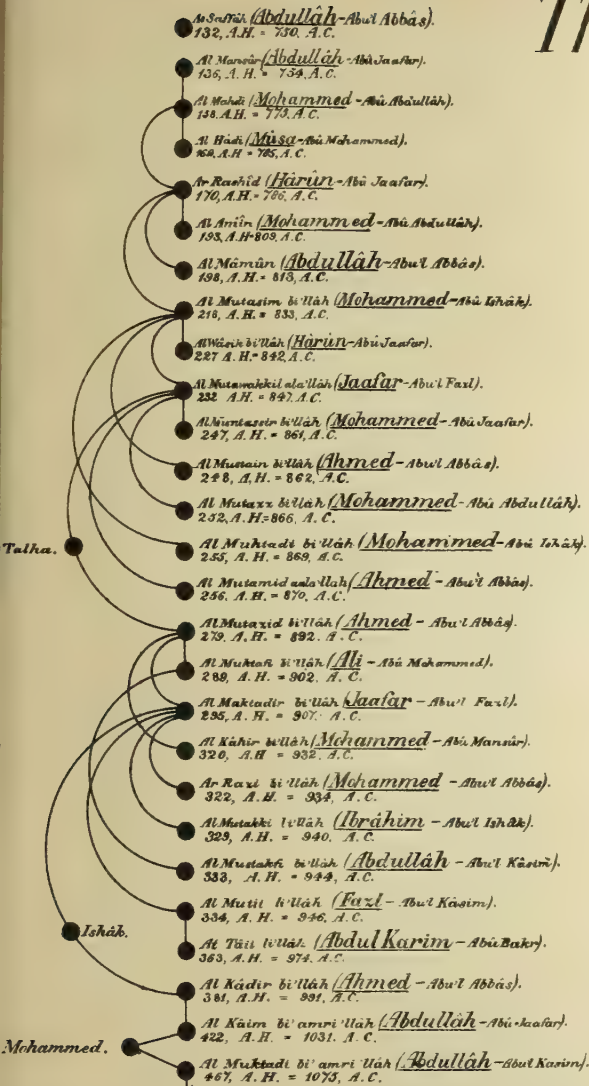 As Saffâh (Abdullâh-Abu'l Abbâs).
132, A.H. = 750. A.C.
Al Mansûr (Abdullâh-Abû Jaafar).
136, A.H. = 754, A.C.
Al Mahdi (Mohammed-Abû Abdullâh).
158, A.H. = 775, A.C.
Al Hâdi (Mûsa-Abû Mohammed).
169, A.H = 785, A.C.
Ar Rashîd (Hârûn-Abû Jaafar).
170, A.H. = 786, A.C.
Al Amîn (Mohammed-Abû Abdullâh).
193, A.H = 809, A.C.
Al Mâmûn (Abdullâh-Abu'l Abbâs).
198, A.H. = 813, A.C.
Al Mutasim bi'llâh (Mohammed-Abû Ishâk).
218, A.H. = 833, A.C.
Al Wâsik bi'llâh (Hârûn-Abû Jaafar).
227 A.H. = 842, A.C.
Al Mutawakkil ala'llâh (Jaafar-Abu'l Fazl).
232 A.H. = 847, A.C.
Al Muntassir bi'llâh (Mohammed-Abû Jaafar).
247, A.H. = 861, A.C.
Al Mustain bi'llâh (Ahmed-Abu'l Abbâs).
248, A.H. = 862, A.C.
Al Mutazz bi'llâh (Mohammed-Abû Abdullâh).
252, A.H. = 866, A.C.
Al Muhtadi bi'llâh (Mohammed-Abû Ishâk).
255, A.H. = 869, A.C.
Talha.
Al Mutamid aala'llah (Ahmed-Abu'l Abbâs).
256, A.H. = 870, A.C.
Al Mutazid bi'llâh (Ahmed-Abu'l Abbâs).
279, A.H. = 892. A.C.
Al Muktafi bi'llâh (Ali-Abû Mohammed).
289, A.H. = 902, A.C.
Al Maktadir bi'llâh (Jaafar-Abu'l Fazl).
295, A.H. = 907. A.C.
Al Kâhir bi'llâh (Mohammed-Abû Mansûr).
320, A.H = 932, A.C.
Ar Razi bi'llâh (Mohammed-Abu'l Abbâs).
322, A.H. = 934, A.C.
Al Muttakki li'llâh (Ibrâhim-Abu'l Ishâk).
329, A.H. = 940, A.C.
Al Mustakfi bi'llâh (Abdullâh-Abu'l Kâsim).
333, A.H. = 944, A.C.
Al Mutii li'llâh (Fazl-Abu'l Kâsim).
334, A.H. = 946, A.C.
Ishâk.
At Tâil li'llâh (Abdul Karim-Abû Bakr).
363, A.H. = 974, A.C.
Al Kâdir bi'llâh (Ahmed-Abu'l Abbâs).
381, A.H. = 991, A.C.
Al Kâim bi'amri'llâh (Abdullâh-Abû Jaafar).
422, A.H. = 1031. A.C.
Mohammed.
Al Muktadi bi'amri'llâh (Abdullâh-Abul Kasim).
467, A.H. = 1075, A.C.